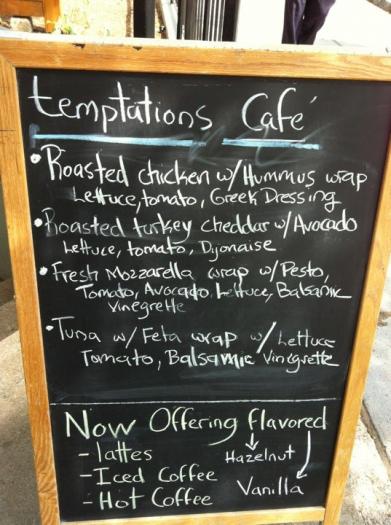 temptations Café
• Roasted chicken w/ Hummus wrap
Lettuce, tomato, Greek Dressing
• Roasted turkey cheddar w/ Avocado
Lettuce, tomato, Dijonaise
• Fresh Mozzarella wrap w/ Pesto,
Tomato, Avocado, Lettuce, Balsamic
Vinegrette
• Tuna w/ Feta wrap w/ Lettuce
Tomato, Balsamic Vinegrette
Now Offering flavored
- lattes
Hazelnut
- Iced Coffee
- Hot Coffee
Vanilla